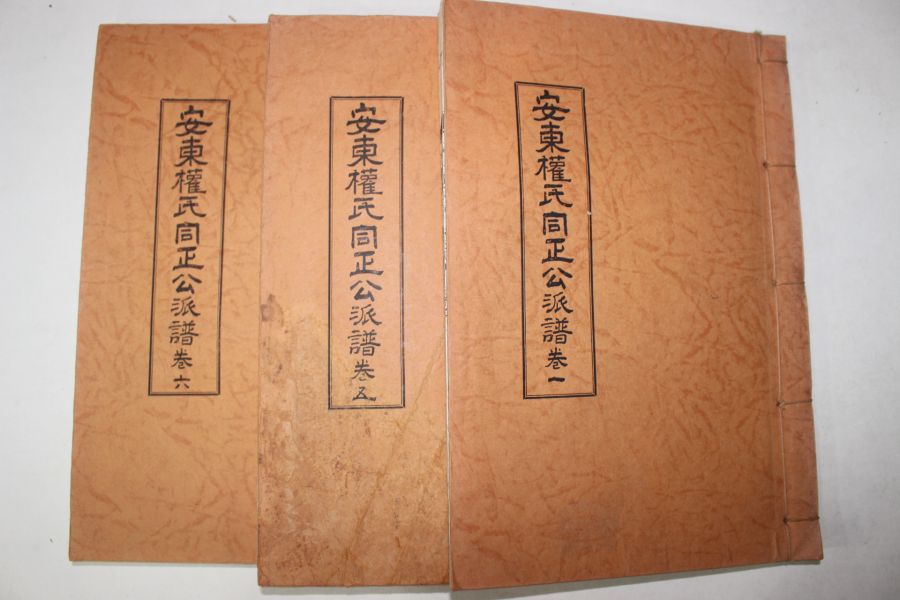 安東權氏同正公派譜卷一
安東權氏同正公派譜卷五
安東權氏同正公派譜卷六